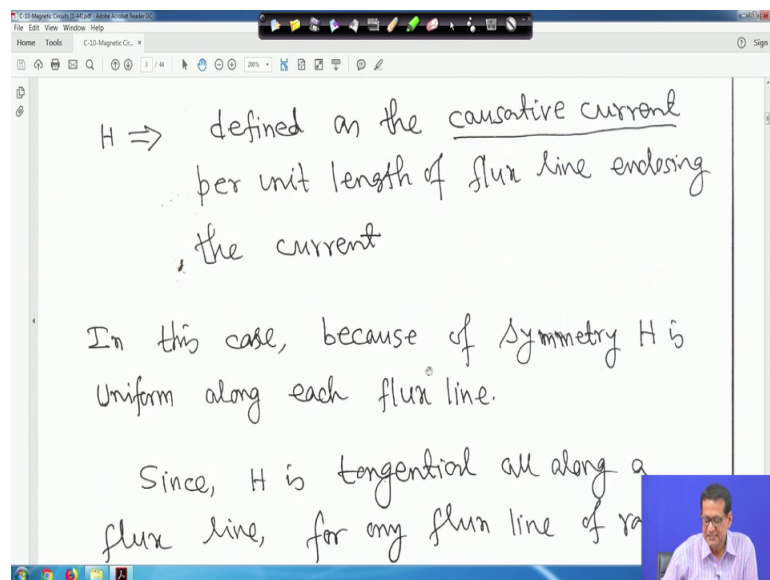 C-10-Magnetic Circuits [1-44].pdf - Adobe Acrobat Reader DC
File Edit View Window Help
Home Tools C-10-Magnetic Cir... × Sign
3 / 44 200%
H ⇒ defined as the causative current
per unit length of flux line enclosing
the current
In this case, because of symmetry H is
uniform along each flux line.
Since, H is tangential all along a
flux line, for any flux line of ra